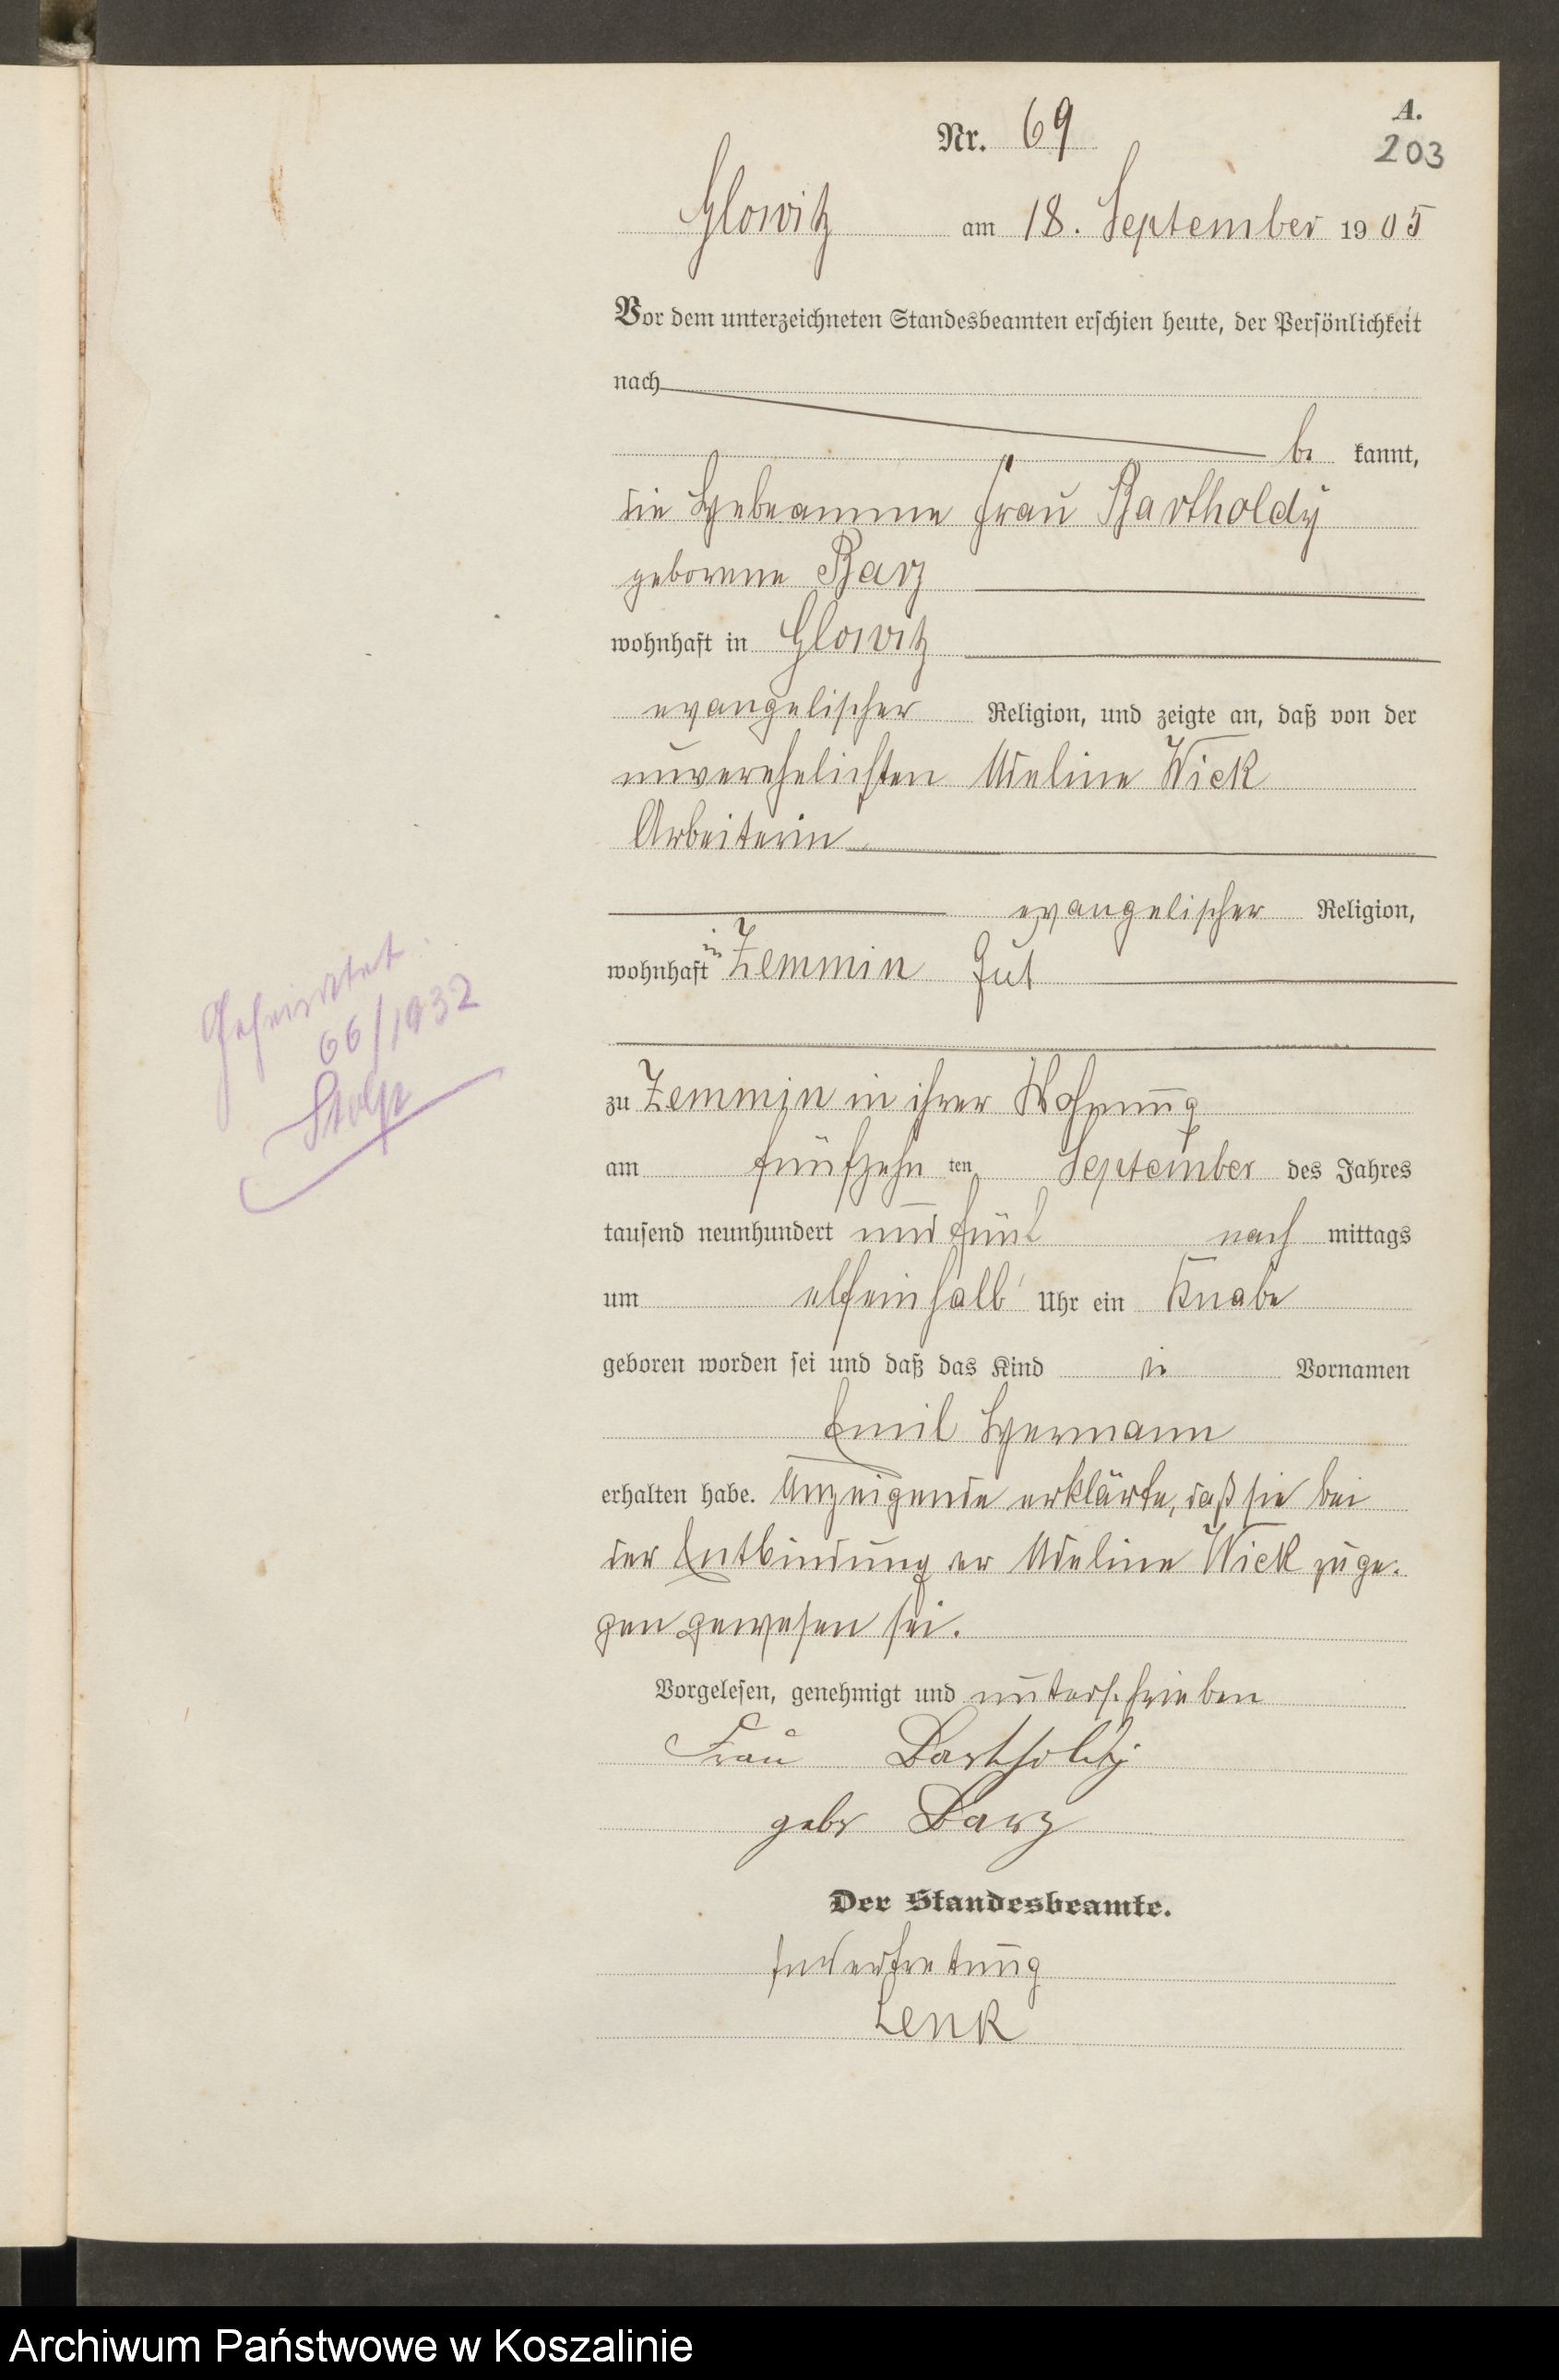 A.
Nr. 69
203
Glowitz am 18. September 1905
Vor dem unterzeichneten Standesbeamten erschien heute, der Persönlichkeit
nach
be kannt,
die Hebeamme Frau Bartholdy
geborene Barz
wohnhaft in Glowitz
evangelischer Religion, und zeigte an, daß von der
unverehelichten Adeline Wick
Arbeiterin
evangelischer Religion,
wohnhaft in Zemmin Gut
zu Zemmin in ihrer Wohnung
am fünfzehn ten September des Jahres
tausend neunhundert und fünf nach mittags
um elfeinhalb Uhr ein Knabe
geboren worden sei und daß das Kind die Vornamen
Emil Hermann
erhalten habe. Anzeigende erklärte, daß sie bei
der Entbindung er Adeline Wick zuge-
gen gewesen sei.
Vorgelesen, genehmigt und unterschrieben
Frau Bartholdy
gebr Barz
Der Standesbeamte.
In Vertretung
Lenk
Geheiratet
66/1932
Stolp
Archiwum Państwowe w Koszalinie